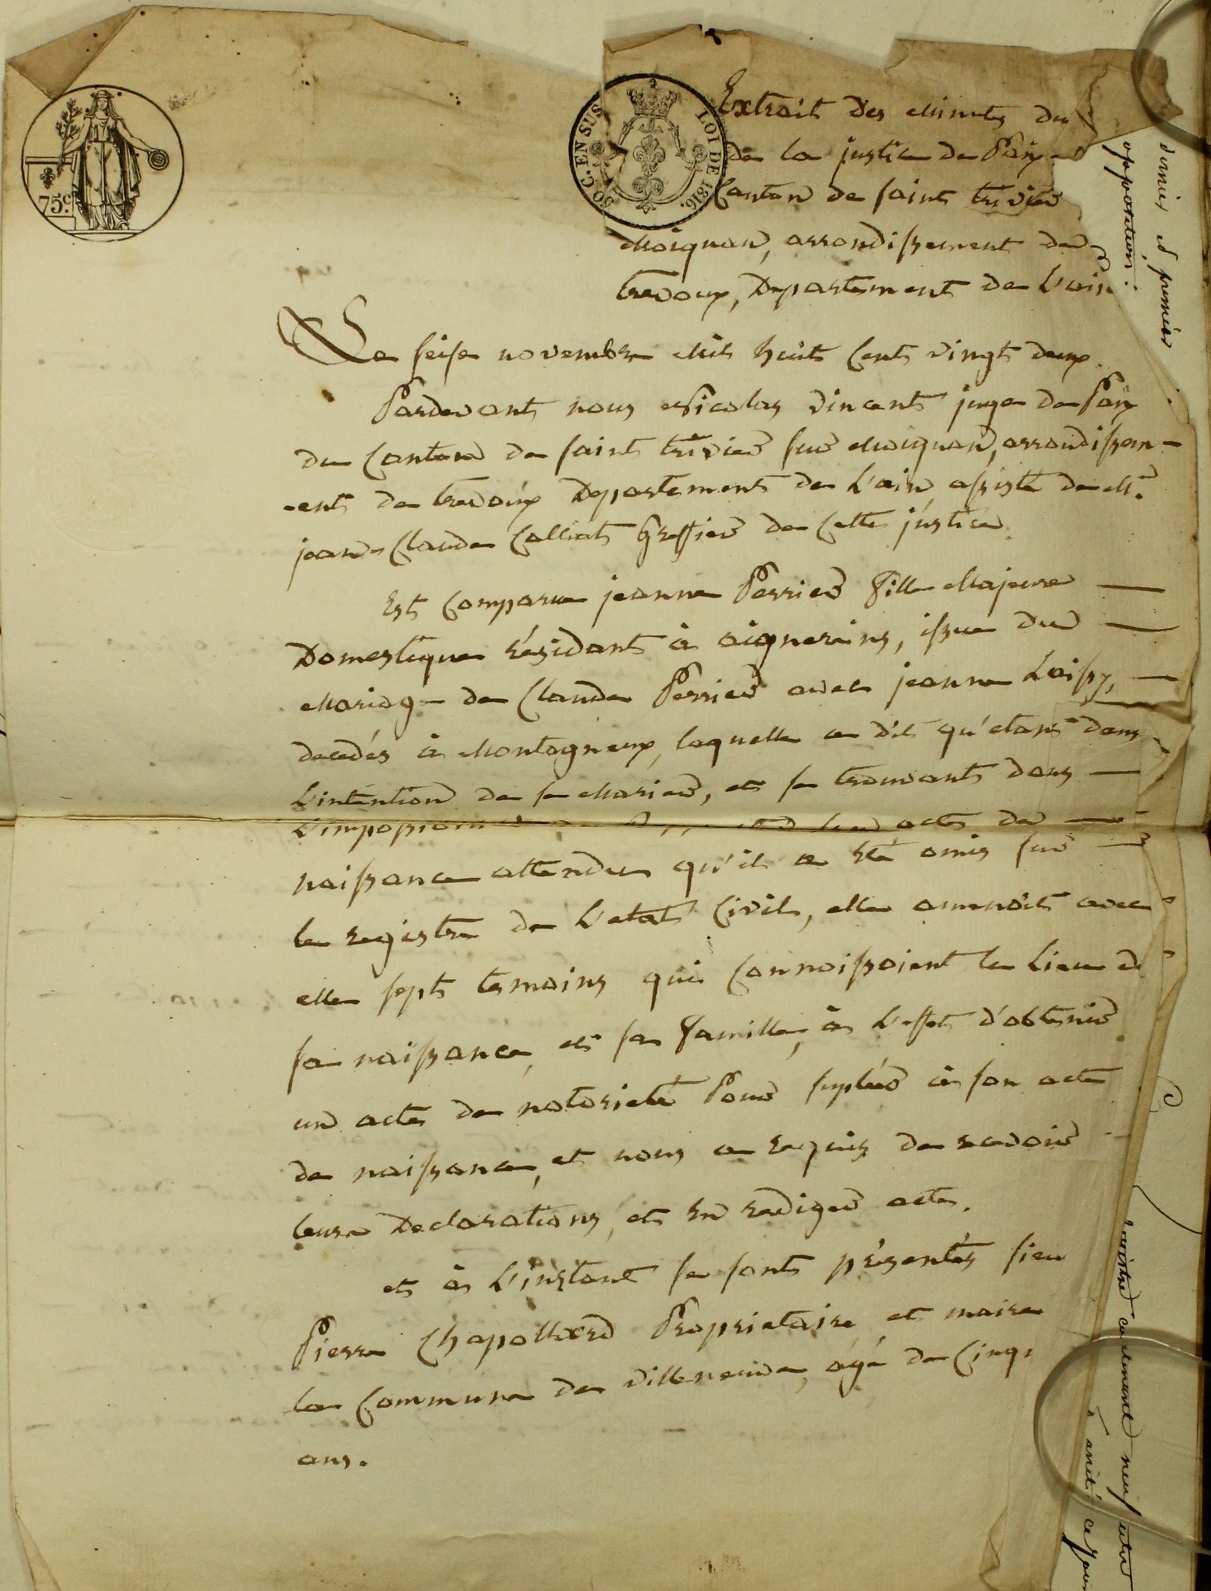 75 c.
SOC. EN SUS
LOI DE 1816.
Extrait des minutes du
de la justice de Paix
Canton de saint trivier
Moignan, arrondissement de
trevoux, Departement de L'ain
Le seise novembre mil huit cent vingt deux.
Pardevant nous Nicolas Vincent juge de Paix
du Canton de saint trivier sur Moignan, arrondissem-
-ent de trevoux Departement de L'ain, assisté de Mr.
jean-Claude Calliat Greffier de Cette justice.
Est Comparue jeanne Perrier Fille Majeure
Domestique résidant à aignerins, issue du
Mariage de Claude Perrier avec jeanne Loisy,
decedés à Montagneux, laquelle a dit qu'étant dans
L'intention de se Marier, et se trouvant dans
actes de
naissance attendu qu'il a été omis sur
le registre de L'etat Civil, elle amenoit avec
elle sept temoins qui Connoissoient le Lieu de
sa naissance, et sa famille, à L'effet d'obtenir
un acte de notorieté Pour supléer à son acte
de naissance, et nous a requis de recevoir
leurs Declarations, et En rediger acte.
et à L'instant se sont présentés sieu
Pierre Chapollard Propriétaire et maire
la Commune de Villeneuve, agé de Cinq
ans.
dernier et premier
opposition: